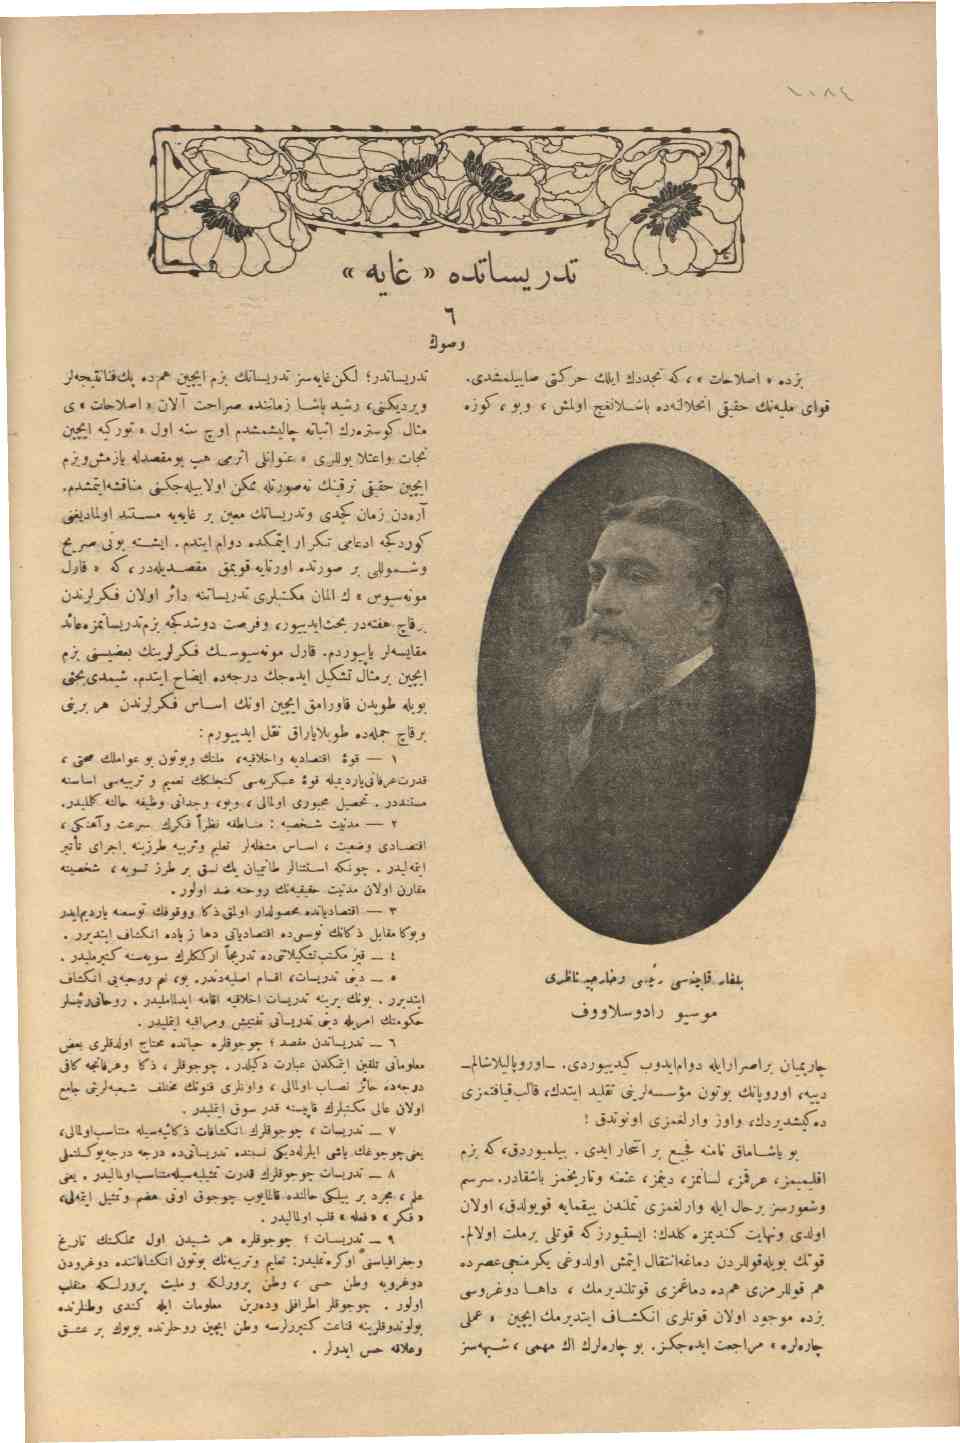 ١٠٨٤
تدريساتده « غايه »
٦
وصوك
بزده « اصلاحات » ، كه تجددك ايلك حركتى صاييلمشدى.
قواى مليه‌نك حقيقى انحلالنه‌ده باشلانغيج اولمش ، وبو ، كوزه
بلغار قابينه‌سى رئيسى وخارجيه ناظرى
موسيو رادوسلاووف
چارپميان براصرارايله دوام‌ايدوب كيديييوردى. ـ اوروپاليلاشالم ـ
دييه، اوروپانك بوتون مؤسسه‌لرينى تقليد ايتدك، قالب‌قيافتمزى
ده كيشديردك، واوز وارلغمزى اونوتدق !
بو ياشاماق نامنه فجيع بر انتحار ايدى . بيلميوردق، كه بزم
اقليميمز، عرقمز، لسانمز، دينمز، عنعنه وتاريخمز باشقادر. سرسم
وشعورسز برحال ايله وارلغمزى تملندن ييقمايه قويولدق، اولان
اولدى ونهايت كنديمزه كلدك: ايستيورزكه قوتلى برملت اولالم.
قوتك بويله‌قوللردن دماغه‌انتقال ايتمش اولدوغى يكرمنجى‌عصرده
هم قوللرمزى هم‌ده دماغمزى قوتلنديرمك ، داها دوغروسى
بزده موجود اولان قوتلرى انكشاف ايتديرمك ايچين « عملى
چاره‌لره » مراجعت ايده‌جكز. بو چاره‌لرك اك مهمى ، شبهه‌سز
تدريساتدر؛ لكن‌غايه‌سز تدريساتك بزم ايچين هم‌ده پك‌فنانتيجه‌لر
ويرديكنى، رشيد پاشا زماننده صراحت آلان « اصلاحات » ى
مثال كوستره‌رك اثباته چاليشمشدم اوچ سنه اول « توركيه ايچين
نجات واعتلا يوللرى » عنوانلى اثرمى هپ بومقصدله يازمش‌وبزم
ايچين حقيقى ترقينك نه‌صورتله ممكن اولابيله‌جكنى مناقشه‌ايتمشدم.
آره‌دن زمان كچدى وتدريساتك معين بر غايه‌يه مستند اولماديغنى
كوردكجه ادعامى تكرار ايتمكده دوام ايتدم . ايشته بونى صريح
وشموللى بر صورتده اورتايه قويمق مقصديله‌در، كه « قارل
مونه‌سيوس » ك المان مكتبلرى تدريساتنه دائر اولان فكرلرندن
برقاچ هفته‌در بحث‌ايدييور، وفرصت دوشدكجه بزم‌تدريساتمزه‌عائد
مقايسه‌لر ياپيوردم. قارل مونه‌سيوسك فكرلرينك بعضيسنى بزم
ايچين برمثال تشكيل ايده‌جك درجه‌ده ايضاح ايتدم. شيمدى‌بحثى
بويله طوپدن قاورامق ايچين اونك اساس فكرلرندن هر برينى
برقاچ جمله‌ده طوپلاياراق نقل ايدييورم :
١ — قوۀ اقتصاديه واخلاقيه، ملتك وبوتون بو عواملك صحتى ،
قدرت‌عرفانى‌ياردميله قوۀ عسكريه‌سى كنجلكك تعليم و تربيه‌سى اساسنه
مستنددر . تحصيل مجبورى اولمالى ، وبو، وجدانى وظيفه حالنه كلمليدر.
٢ — مدنيت شخصيه : مناطقه نظراً فكرك سرعت وآهنكى ،
اقتصادى وضعيت ، اساس مشغله‌لر تعليم وتربيه طرزينه اجراى تأثير
ايتمه‌ليدر . چونكه استثنالر طانيميان يك نسق بر طرز تسويه ، شخصيته
مقارن اولان مدنيت حقيقيه‌نك روحنه ضد اولور .
٣ — اقتصادياتده محصولدار اولمق‌ذكا ووقوفك توسعنه ياردم‌ايدر
وبوكا مقابل ذكانك توسعى‌ده اقتصادياتى دها زياده انكشاف ايتديرر .
٤ — قيز مكتب‌تشكيلاتى‌ده تدريجاً ارككلرك سويه‌سنه كتيرملیدر .
٥ — دينى تدريسات، اقسام اصليه‌دندر. بو، نيم روحيه‌يى انكشاف
ايتديرر . بونك يرينه تدريسات اخلاقيه اقامه ايديلمامليدر . روحانى‌رئيسلر
حكومتك امريله دينى تدريساتى تفتيش ومراقبه ايتمليدر .
٦ — تدريساتدن مقصد ؛ چوجوقلره حياتده محتاج اولدقلرى بعض
معلوماتى تلقين ايتمكدن عبارت دكيلدر. چوجوقلر ، ذكا وهرفانجه كافى
درجه‌ده حائز نصاب اولمالى ، واونلرى فنونك مختلف شعبه‌لرينى جامع
اولان عالى مكتبلرك قاپيسنه قدر سوق ايتمليدر .
٧ — تدريسات ، چوجوقلرك انكشافات ذكائيه‌سيله متناسب‌اولمالى،
يعنى‌چوجوغك ياشى ايلرله‌ديكى نسبتده تدريسات‌ده درجه درجه‌يوكسلملى
٨ — تدريسات چوجوقلرك قدرت تمثيليه‌سيله‌متناسب‌اولماليدر . يعنى
علم ، مجرد بر بيلكى حالنده قالمايوب چوجوق اونى هضم وتمثيل ايتمه‌لى،
« فكر » « فعله » قلب اولماليدر .
٩ — تدريسات ؛ چوجوقلره هر شيدن اول مملكتك تاريخ
وجغرافياسنى اوكرتمليدر: تعليم وتربيه‌نك بوتون انكشافاتنده دوغرودن
دوغرويه وطن حسى ، وطن پرورلكه و مليت پرورلكه منقلب
اولور . چوجوقلر اطرافلى ودرين معلومات ايله كندى وطنلرنده
بولوندوقلرينه قناعت كتيررلرسه وطن ايچين روحلرنده بويوك بر عشق
وعلاقه حس ايدرلر .